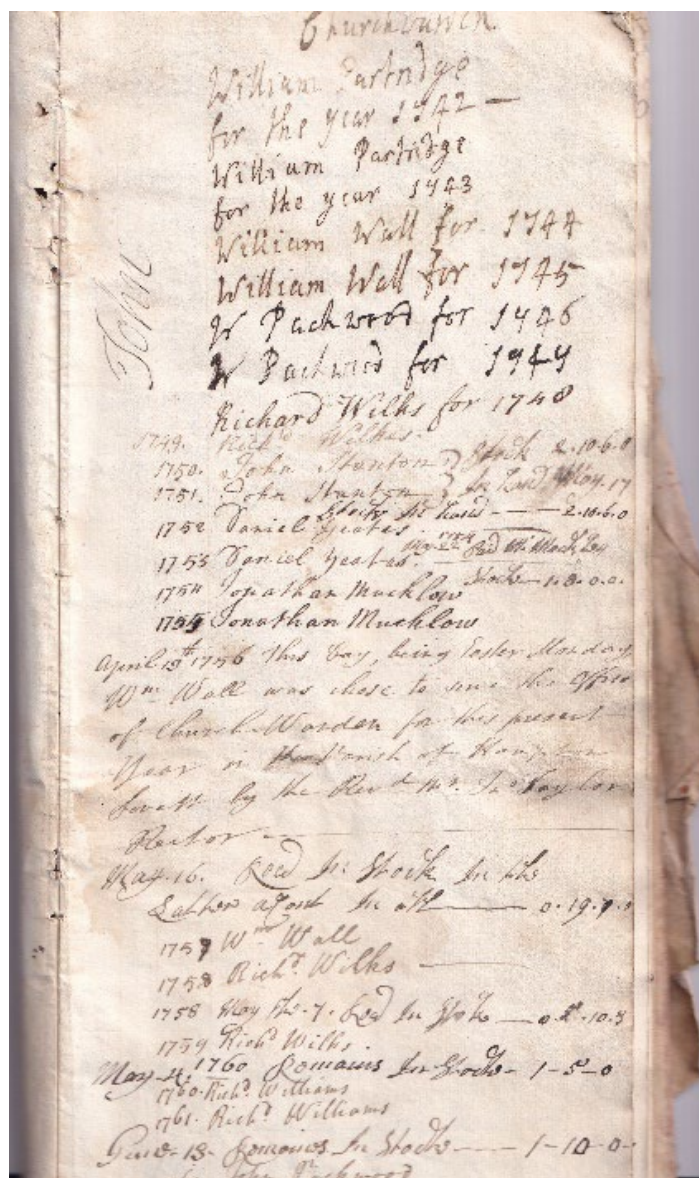 Churchwarden
William Partridge
for the year 1742 —
William Partridge
for the year 1743
William Wall for 1744
William Wall for 1745
W Packwood for 1746
W Packwood for 1747
John
Richard Wilks for 1748
1749. Rich.d Wilkes
1750. John Stanton Stock 2.10.6.0
1751. John Stanton In Hand May. 17
Stock In Hand — 2.10.6.0
1752 Daniel Yeates
1753 Daniel Yeates
1754 Jonathan Mucklow Stock
1755 Jonathan Mucklow
April 19th 1756 this Day, being Easter Monday
Wm Wall was chose to serve the Office
of Church Warden for this present
Year in the Parish of Hampton
Lovett by the Revd Mr. Jno Taylor
Rector —
May 16. Recd In Stock In the
Latter acont In all — 0.19.
1757 Wm Wall
1758 Richd Wilks —
1758 May the 7. Recd In Stock —
1759 Richd Wilks
May 4. 1760 Remains In Stock - 1-5-0
1760. Richd Williams
1761. Richd Williams
13- Remains In Stock — 1-10-0-
John Packwood